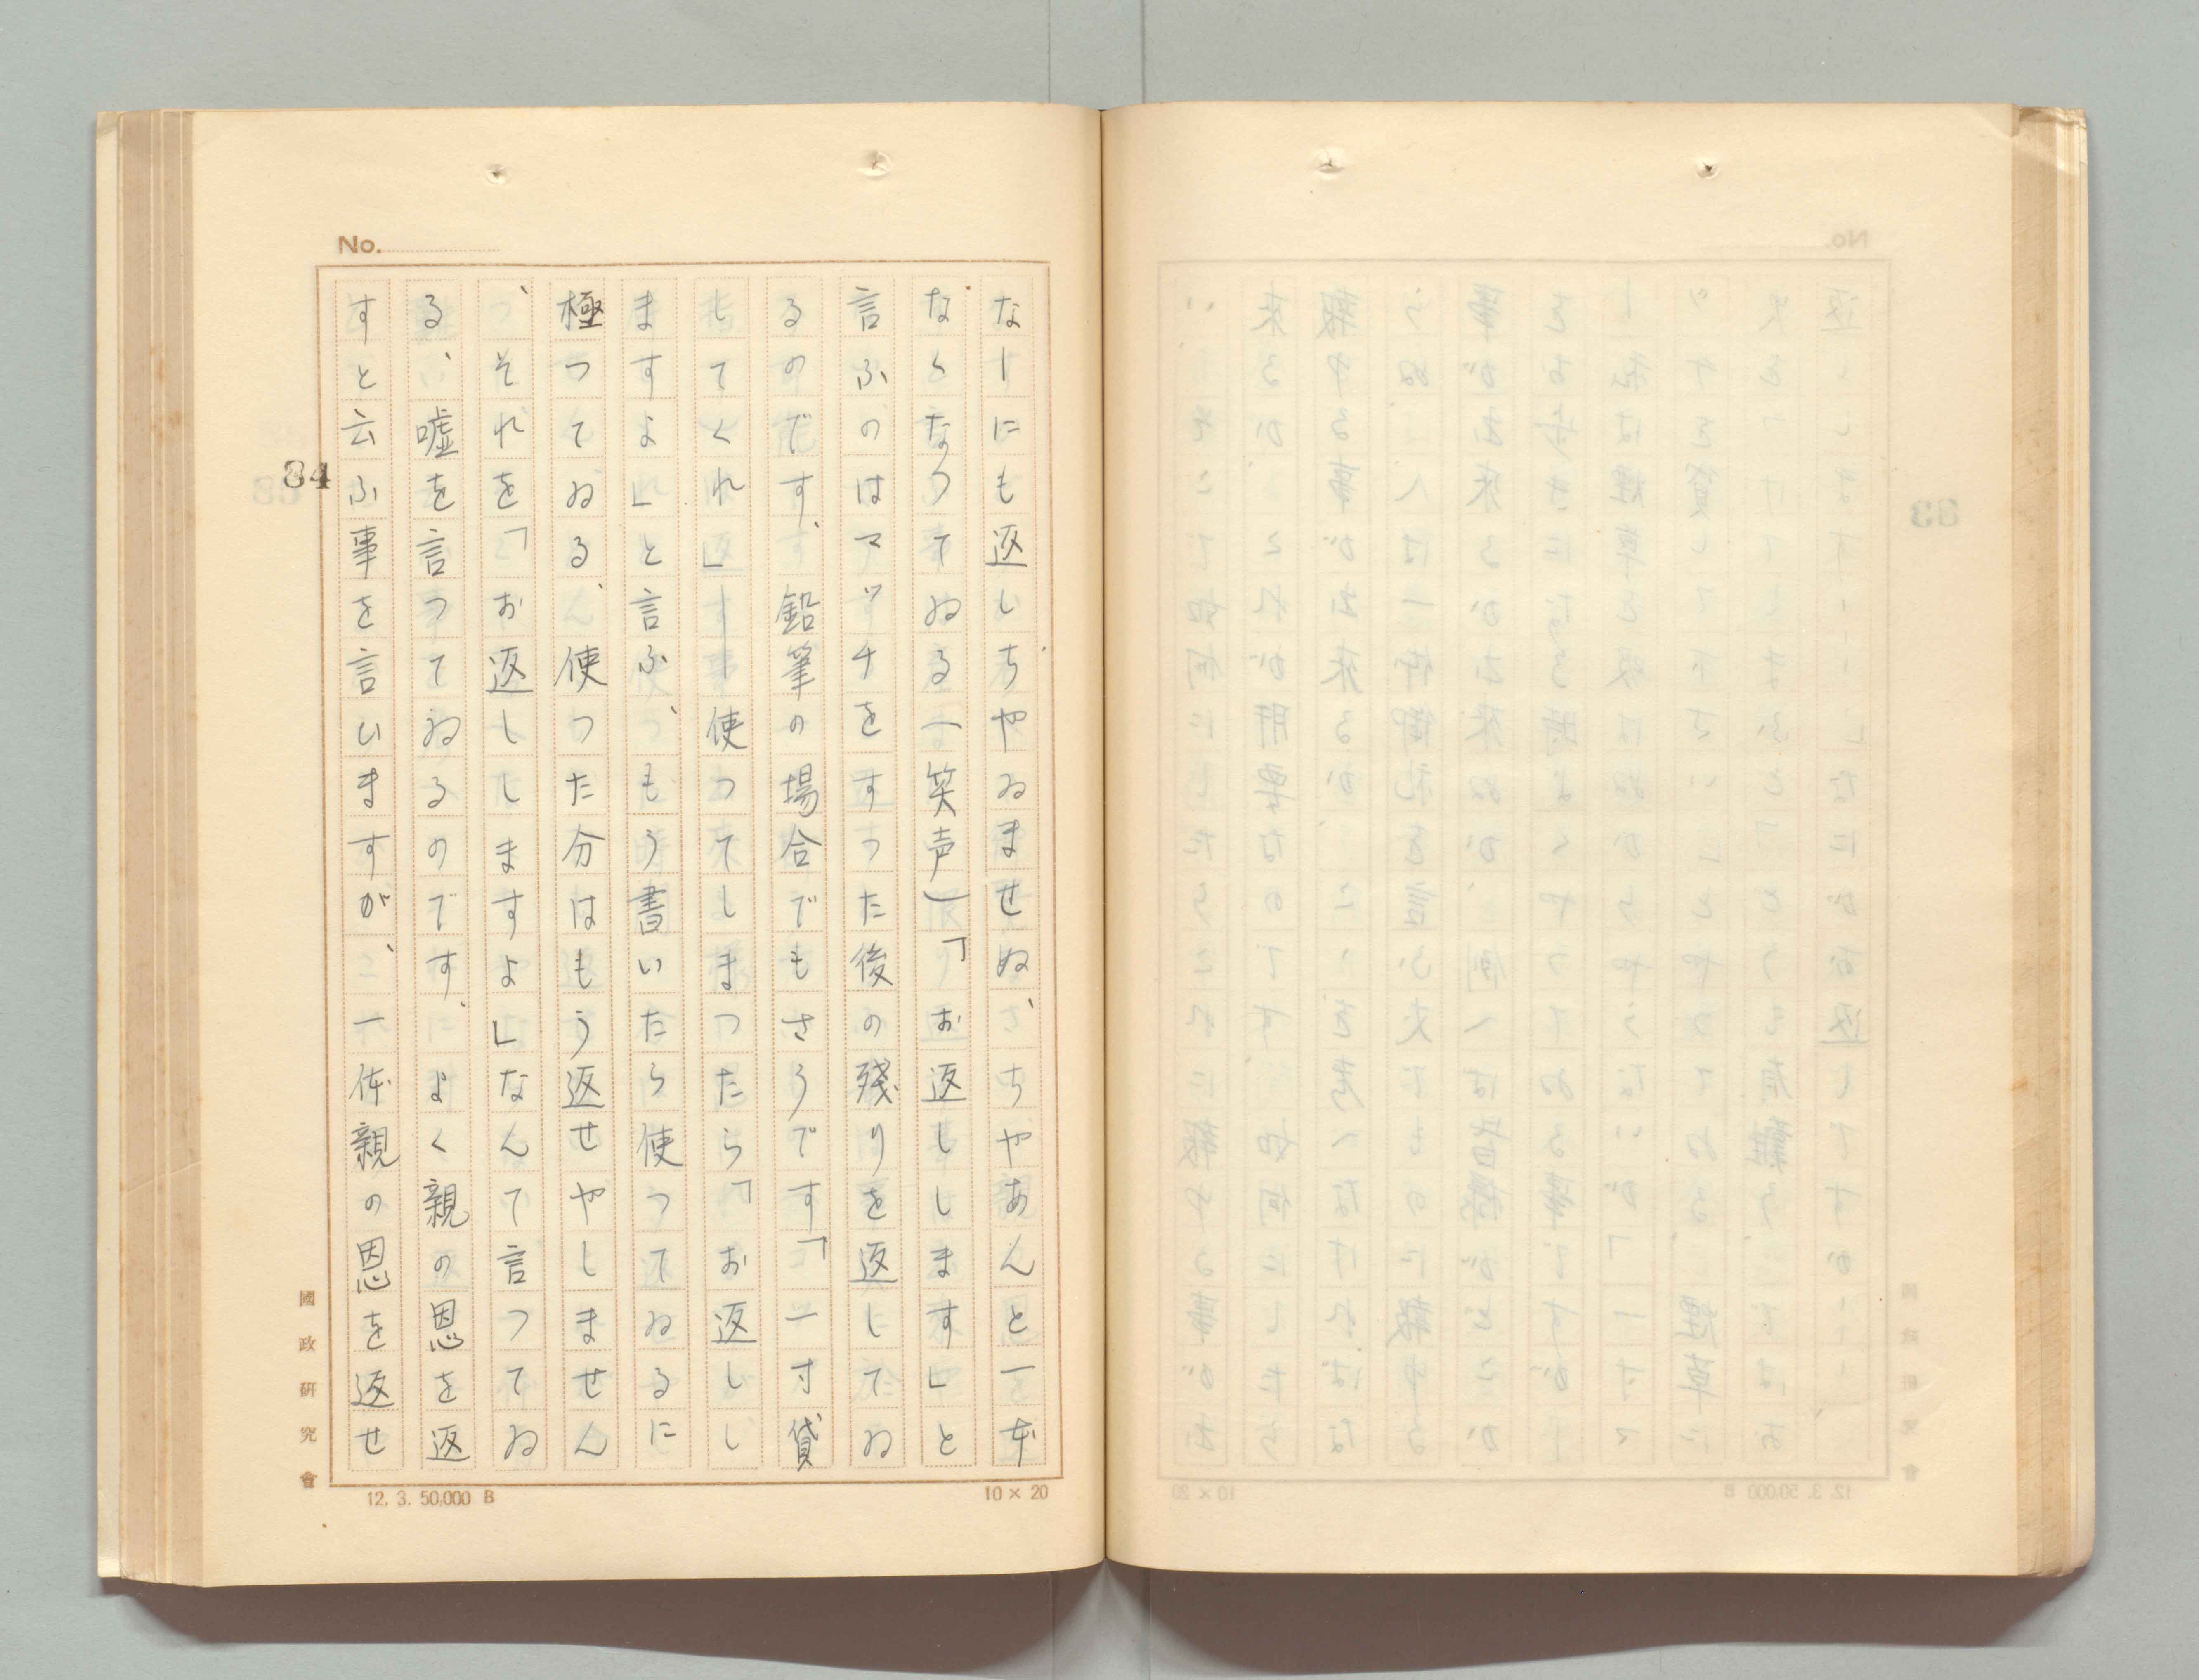 No.
なーにも返しちやゐませぬ、ちやあんと一本
なくなつてゐる（笑声）「お返しします」と
言ふのはマッチをすつた後の残りを返してゐ
るのです、鉛筆の場合でもさうです「一寸貸
してくれ」――使つてしまつたら「お返しし
ますよ」と言ふ、もう書いたら使つてゐるに
極つてゐる、使つた分はもう返せやしません
、それを「お返ししますよ」なんて言つてゐ
る、嘘を言つてゐるのです、よく親の恩を返
すと云ふ事を言いますが、一体親の恩を返せ
84
國政研究會
12. 3. 50,000 B
10×20